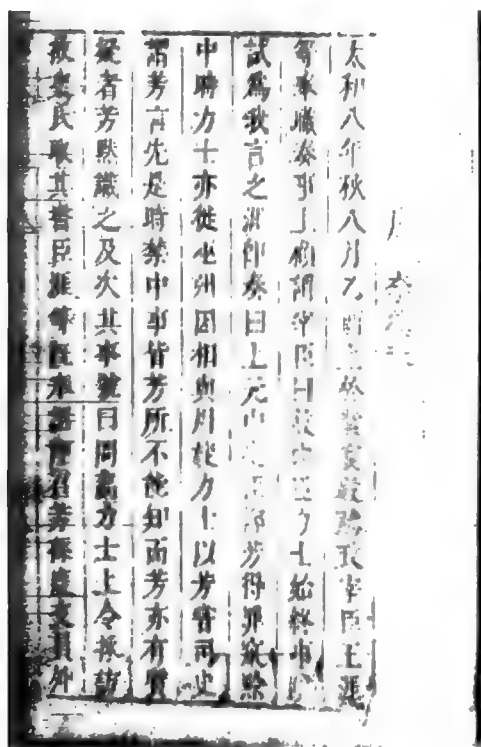 太和八年秋八月乙酉上於紫宸殿聽政宰臣王涯
等奉職奏事上顧謂宰臣曰故內臣力士始終事跡
試爲我言之涯即奏曰上元中史臣柳芳得罪竄黔
中時力士亦徙巫州因相與周旋力士以芳嘗司史
謂芳言先是時禁中事皆芳所不能知而芳亦有質
疑者芳默識之及次其事號曰問高力士上令採訪
故史氏取其書臣涯等既奉詔召芳孫度支員外